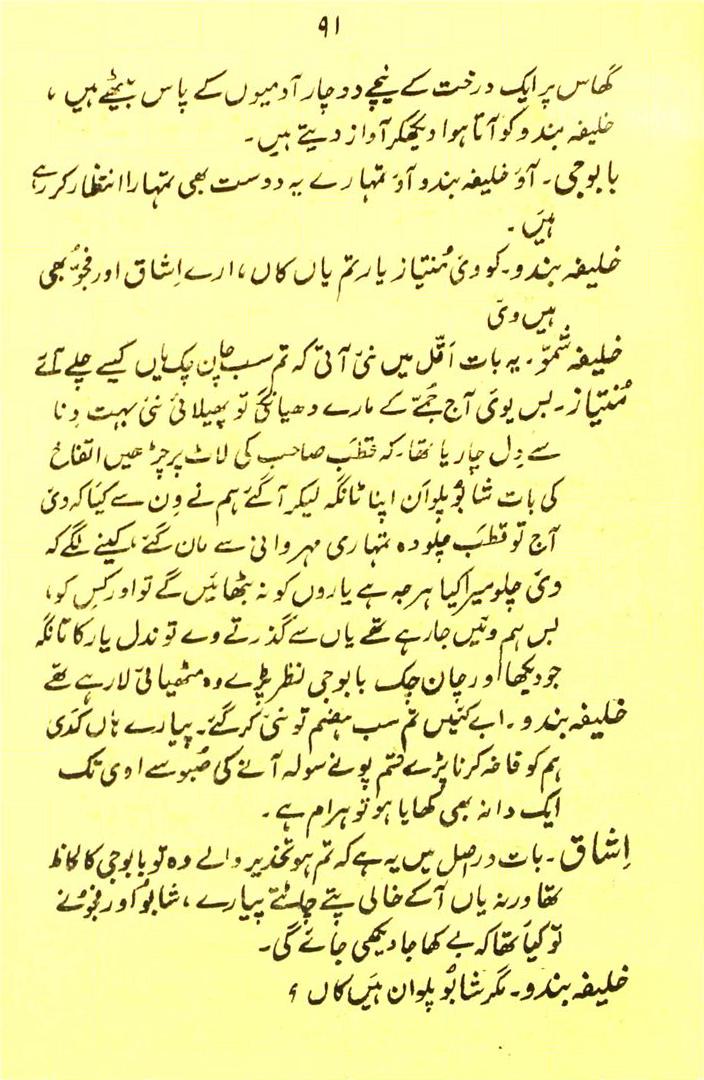 ۹۱
گھاس پر ایک درخت کے نیچے دو چار آدمیوں کے پاس بیٹھے ہیں ،
خلیفہ بندو کو آتا ہوا دیکھکر آواز دیتے ہیں۔
بابوجی۔ آؤ خلیفہ بندو آؤ تمہارے یہ دوست بھی تمہارا انتظار کر رہے
ہیں۔
خلیفہ بندو۔ کو وئ مُنتیاز یار تم یاں کاں ، ارے اِشاق اور فجوُّ بھی
ہیں وئ
خلیفہ شمّو۔ یہ بات اَقّل میں نئ آتی کہ تم سب چان چک یاں کیسے چلے آئے
مُنتیاز۔ بس یوئ آج جُمّے کے مارے دھیانگی تو پھیلائی نئ بہت دِنا
سے دِل چا ریا تھا۔ کہ قطب صاحب کی لاٹ پر چڑھیں اتفاخ
کی بات شابُو پلوان اپنا ٹانگہ لیکر آگئے ہم نے وِن سے کیا کہ وئ
آج تو قطب چلو وہ تمہاری مہروانی سے مان گئے، کینے لگے کہ
وئ چلو میرا کیا ہرجہ ہے یاروں کو نہ بٹھائیں گے تو اور کِس کو،
بس ہم ونیں جارہے تھے یاں سے گذرتے وے تو ندل یار کا تانگہ
جو دیکھا اور چان چک بابوجی نظر پڑے وہ مٹھیائی لارہے تھے
خلیفہ بندو۔ ابے کئیں تم سب ہضم تو نئ کر گئے۔ پیارے ہاں کدی
ہم کو فاخہ کرنا پڑے قسم پونے سولہ آنے کی صُبو سے اوی تک
ایک دانہ بھی کھایا ہو تو ہرام ہے۔
اِشاق۔ بات دراصل میں یہ ہے کہ تم ہو تخدیر والے وہ تو بابوجی کا لحاظ
تھا ورنہ یاں آکے خالی پتے چاٹتے پیارے ، شابُو اور فجوُّ نے
تو کیا تھا کہ بے کھا جا دیکھی جائے گی۔
خلیفہ بندو۔ مگر شابُو پلوان ہیں کاں ؟